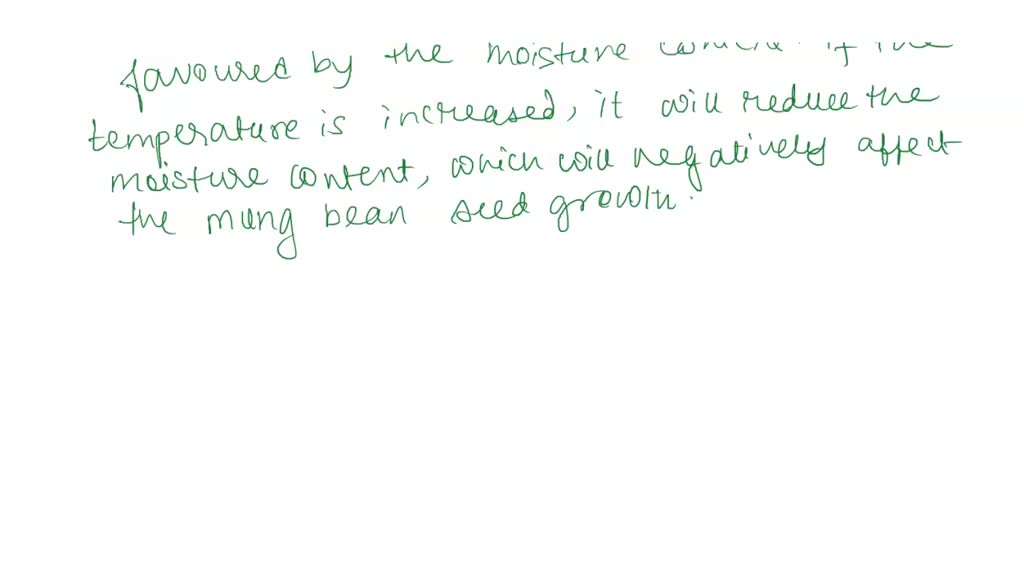 favoured by the moisture content. if the
temperature is increased, it will reduce the
moisture content, which will negatively affect
the mung bean seed growth.